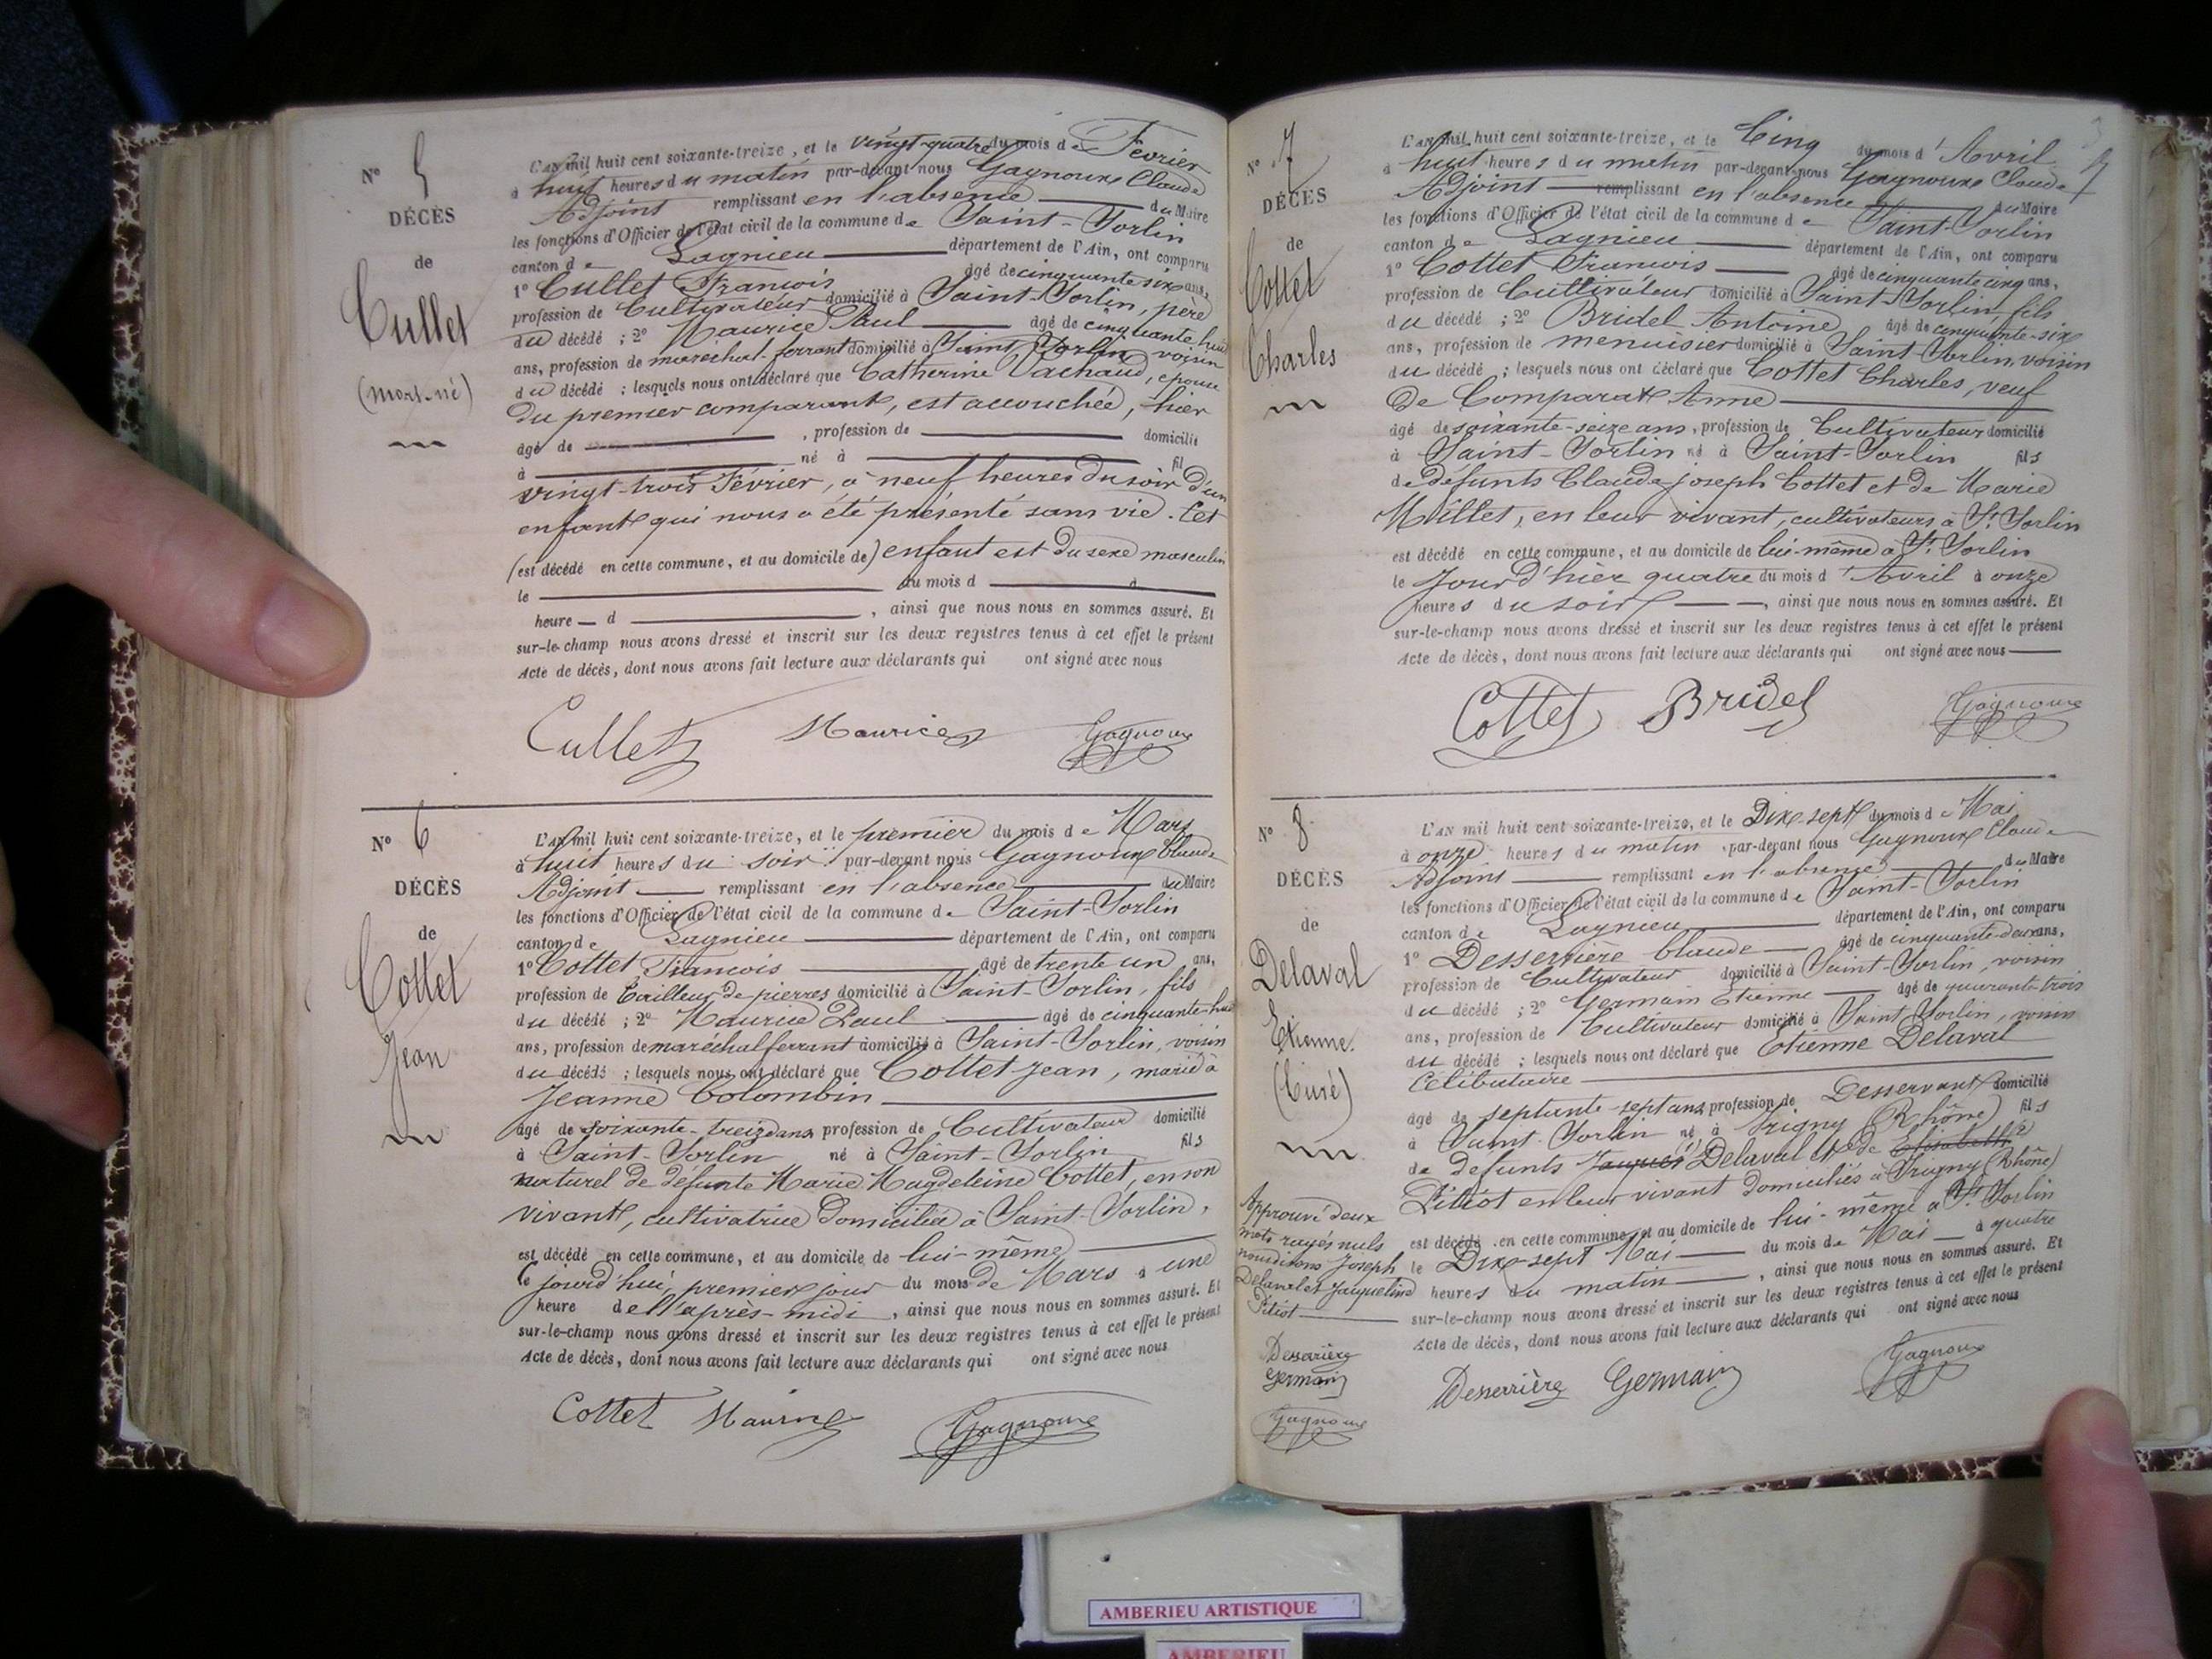 N° 5
DÉCÈS
de
Cullet
(mort-né)
L'AN mil huit cent soixante-treize, et le vingt-quatre du mois de Février
à huit heures du matin par-devant nous Gagnoux Claude
Adjoint remplissant en l'absence du Maire
les fonctions d'Officier de l'état civil de la commune de Saint-Sorlin
canton de Lagnieu département de l'Ain, ont comparu
1° Cullet Francois âgé de cinquante six ans,
profession de Cultivateur domicilié à Saint-Sorlin, père
du décédé ; 2° Maurice Paul âgé de cinquante huit
ans, profession de maréchal-ferrant domicilié à Saint-Sorlin voisin
du décédé ; lesquels nous ont déclaré que Catherine Vachaud, épouse
du premier comparant, est accouchée, hier
âgé de , profession de domicilié
à né à fil
vingt-trois Février, à neuf heures du soir d'un
enfant qui nous a été présenté sans vie. Cet
(est décédé en cette commune, et au domicile de) enfant est du sexe masculin
le du mois d à
heure d , ainsi que nous nous en sommes assuré. Et
sur-le-champ nous avons dressé et inscrit sur les deux registres tenus à cet effet le présent
Acte de décès, dont nous avons fait lecture aux déclarants qui ont signé avec nous
Cullet Maurice Gagnoux
N° 6
DÉCÈS
de
Cottet
Jean
L'AN mil huit cent soixante-treize, et le premier du mois de Mars
à huit heures du soir par-devant nous Gagnoux Claude
Adjoint remplissant en l'absence du Maire
les fonctions d'Officier de l'état civil de la commune de Saint-Sorlin
canton de Lagnieu département de l'Ain, ont comparu
1° Cottet Francois âgé de trente un ans,
profession de tailleur de pierres domicilié à Saint-Sorlin, fils
du décédé ; 2° Maurice Paul âgé de cinquante-huit
ans, profession de maréchal ferrant domicilié à Saint-Sorlin, voisin
du décédé ; lesquels nous ont déclaré que Cottet Jean, marié à
Jeanne Colombin
âgé de soixante-treize ans, profession de Cultivateur domicilié
à Saint-Sorlin né à Saint-Sorlin fils
naturel de défunte Marie Magdeleine Cottet, en son
vivant, cultivatrice domiciliée à Saint-Sorlin,
est décédé en cette commune, et au domicile de lui-même
le jourd'hui, premier jour du mois de Mars à une
heure de l'après-midi, ainsi que nous nous en sommes assuré. Et
sur-le-champ nous avons dressé et inscrit sur les deux registres tenus à cet effet le présent
Acte de décès, dont nous avons fait lecture aux déclarants qui ont signé avec nous
Cottet Maurice Gagnoux
N° 7
DÉCÈS
de
Cottet
Charles
L'AN mil huit cent soixante-treize, et le Cinq du mois d'Avril
à huit heures du matin par-devant nous Gagnoux Claude
Adjoint remplissant en l'absence du Maire
les fonctions d'Officier de l'état civil de la commune de Saint-Sorlin
canton de Lagnieu département de l'Ain, ont comparu
1° Cottet Francois âgé de cinquante cinq ans,
profession de Cultivateur domicilié à Saint-Sorlin, fils
du décédé ; 2° Bridel Antoine âgé de cinquante-six
ans, profession de menuisier domicilié à Saint-Sorlin, voisin
du décédé ; lesquels nous ont déclaré que Cottet Charles, veuf
de Comparat Anne
âgé de soixante-seize ans, profession de Cultivateur domicilié
à Saint-Sorlin né à Saint-Sorlin fils
de défunts Claude joseph Cottet et de Marie
Millet, en leur vivant, cultivateurs à St Sorlin
est décédé en cette commune, et au domicile de lui-même à St Sorlin
le Jour d'hier quatre du mois d'Avril à onze
heures du soir, ainsi que nous nous en sommes assuré. Et
sur-le-champ nous avons dressé et inscrit sur les deux registres tenus à cet effet le présent
Acte de décès, dont nous avons fait lecture aux déclarants qui ont signé avec nous
Cottet Bridel Gagnoux
N° 8
DÉCÈS
de
Delaval
Etienne
(Curé)
Approuvé deux
mots rayés nuls
nous disons Joseph
Delaval et Jacqueline
Pitiot
Desserrière
Germain
Gagnoux
L'AN mil huit cent soixante-treize, et le Dix-sept du mois de Mai
à onze heures du matin par-devant nous Gagnoux Claude
Adjoint remplissant en l'absence du Maire
les fonctions d'Officier de l'état civil de la commune de Saint-Sorlin
canton de Lagnieu département de l'Ain, ont comparu
1° Desserrière Claude âgé de cinquante-deux ans,
profession de Cultivateur domicilié à Saint-Sorlin, voisin
du décédé ; 2° Germain Etienne âgé de quarante-trois
ans, profession de Cultivateur domicilié à Saint Sorlin, voisin
du décédé ; lesquels nous ont déclaré que Etienne Delaval
Célibataire
âgé de septante-sept ans, profession de Desservant domicilié
à Saint-Sorlin né à Irigny (Rhône) fils
de défunts Jacques Delaval et de Elisabeth
Pitiot en leur vivant domiciliés à Irigny (Rhône)
est décédé en cette commune, et au domicile de lui-même à St Sorlin
le Dix-sept Mai du mois de Mai à quatre
heures du matin, ainsi que nous nous en sommes assuré. Et
sur-le-champ nous avons dressé et inscrit sur les deux registres tenus à cet effet le présent
Acte de décès, dont nous avons fait lecture aux déclarants qui ont signé avec nous
Desserrière Germain Gagnoux
AMBERIEU ARTISTIQUE
AMBERIEU